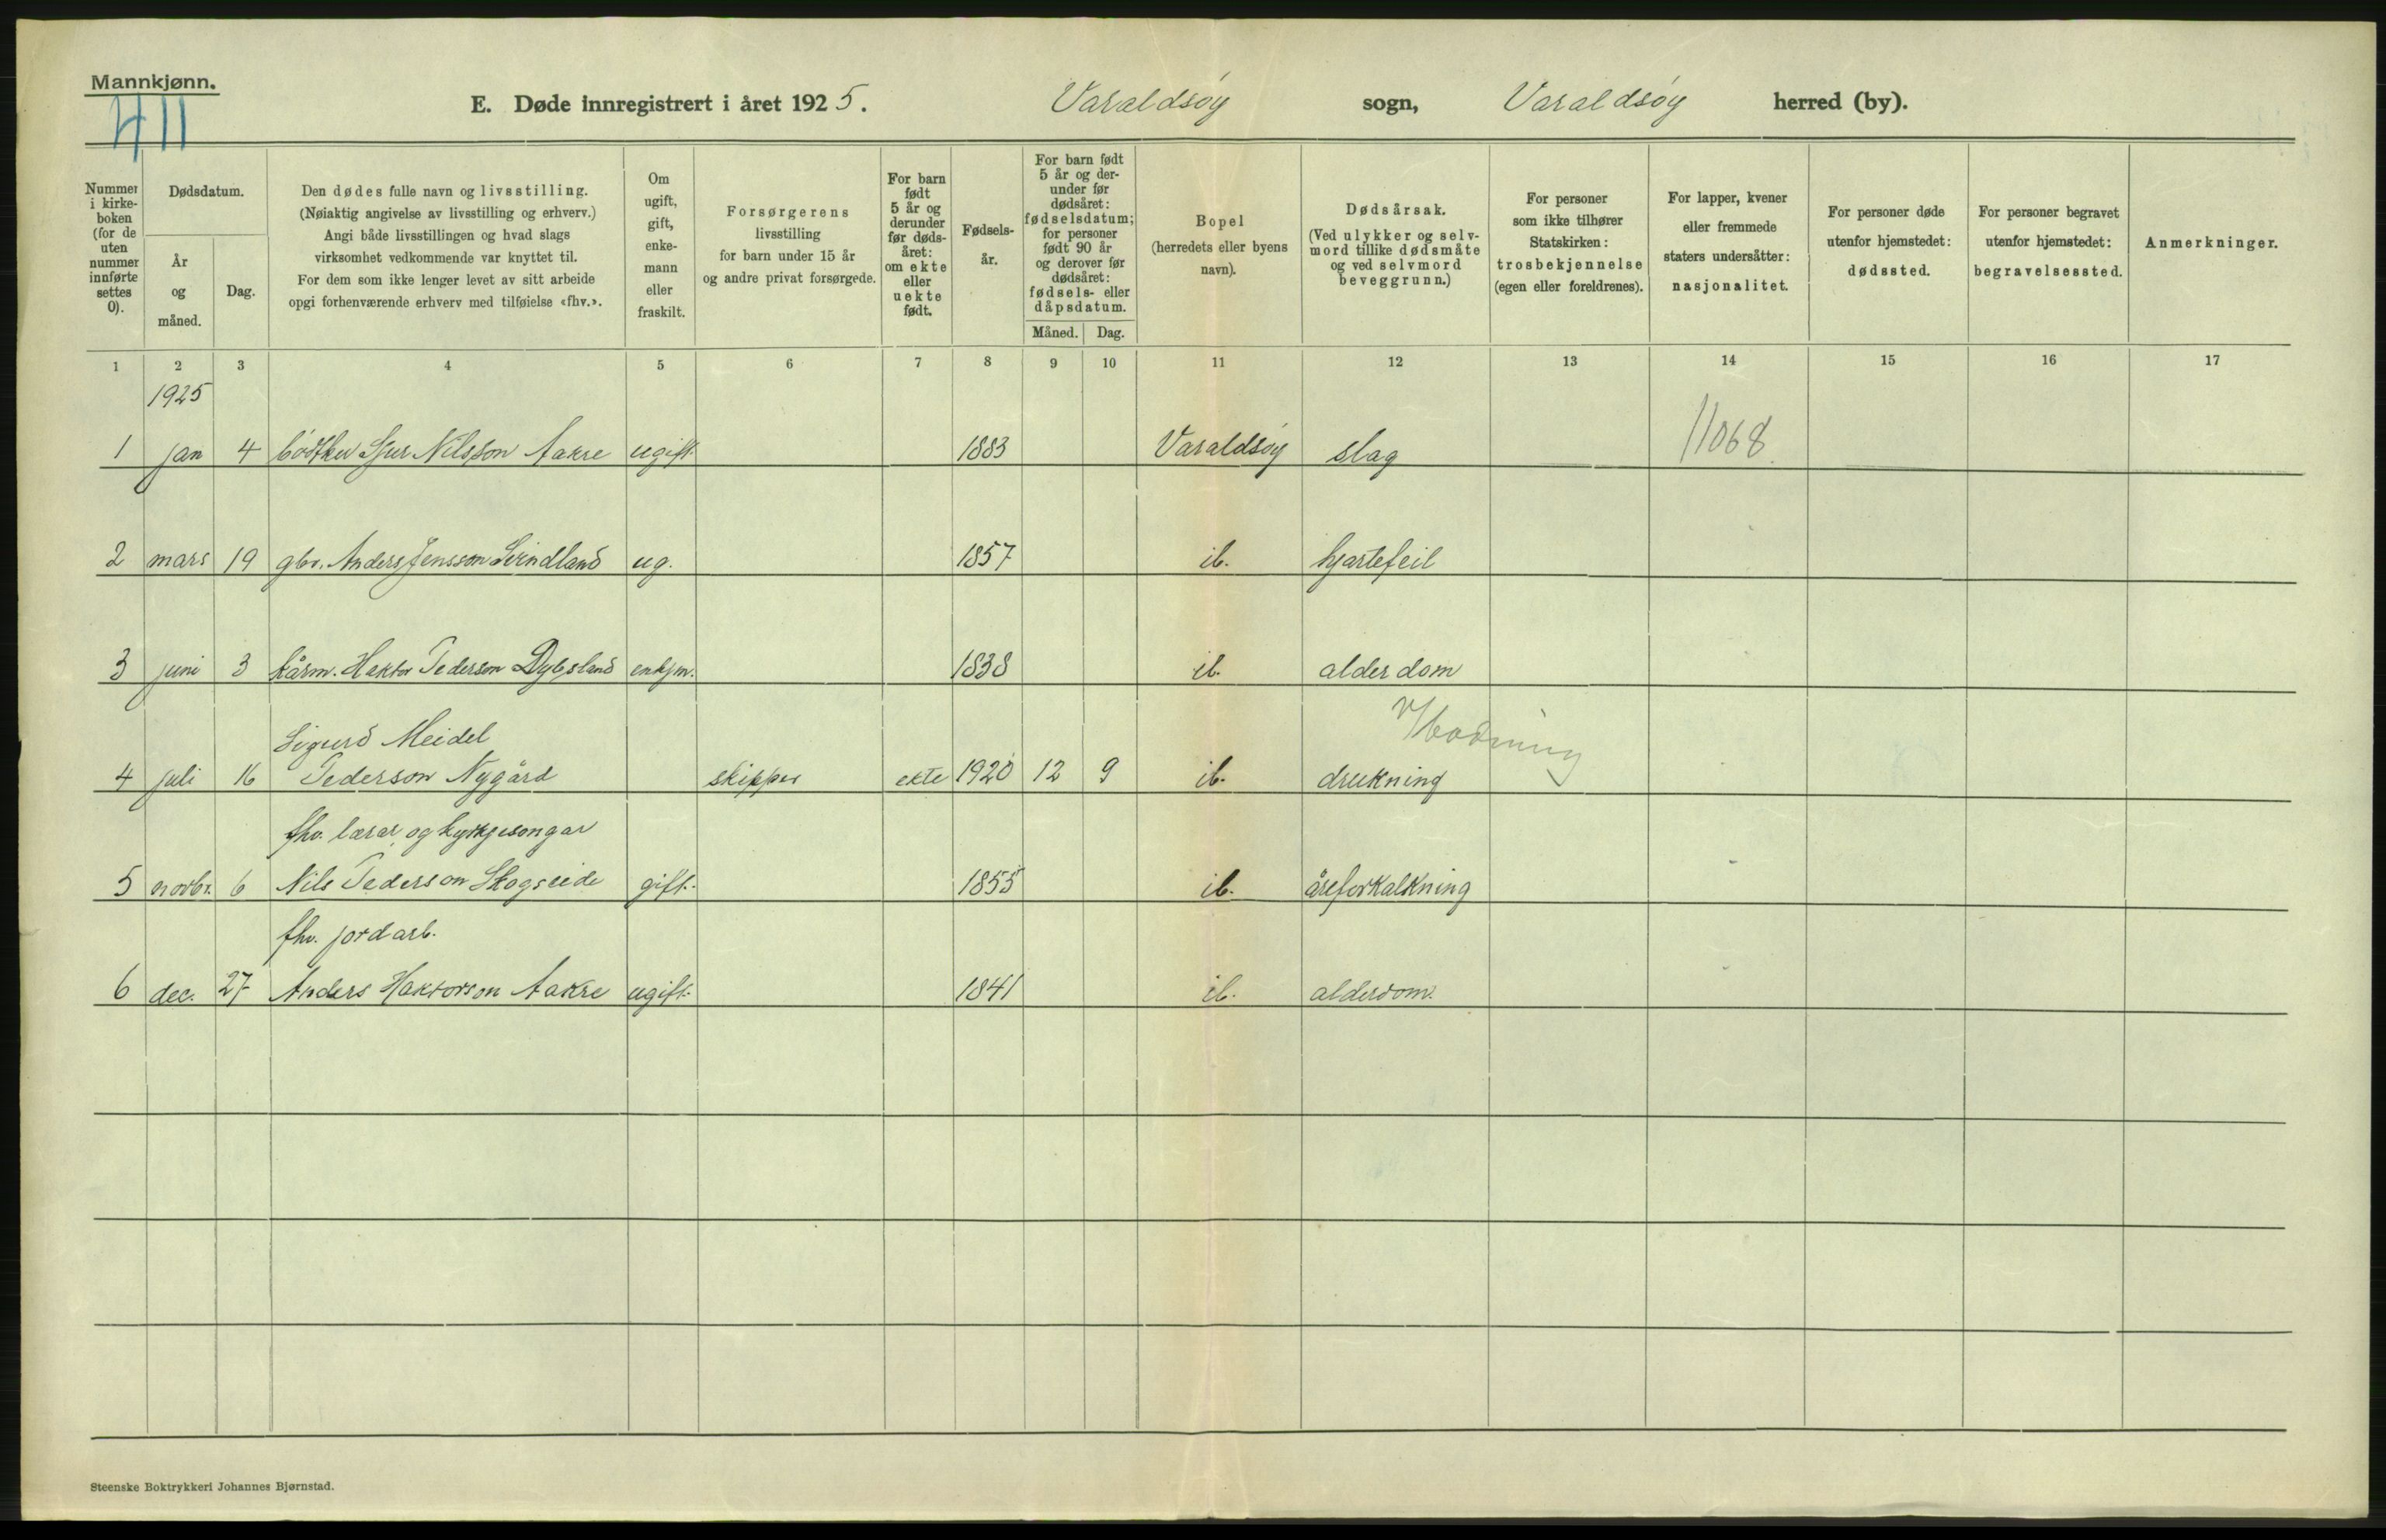 Mannkjønn.
411
E. Døde innregistrert i året 1925. Varaldsøy sogn, Varaldsøy herred (by).
Nummer i kirkeboken (for de uten nummer innførte settes 0).
Dødsdatum.
År og måned.
Dag.
Den dødes fulle navn og livsstilling.
(Nøiaktig angivelse av livsstilling og erhverv.)
Angi både livsstillingen og hvad slags
virksomhet vedkommende var knyttet til.
For dem som ikke lenger levet av sitt arbeide
opgi forhenværende erhverv med tilføielse «fhv.».
Om ugift, gift, enkemann eller fraskilt.
Forsørgerens
livsstilling
for barn under 15 år
og andre privat forsørgede.
For barn født 5 år og derunder før dødsåret: om ekte eller uekte født.
Fødselsår.
For barn født 5 år og derunder før dødsåret: fødselsdatum; for personer født 90 år og derover før dødsåret: fødsels- eller dåpsdatum.
Måned. Dag.
Bopel
(herredets eller byens
navn).
Dødsårsak.
(Ved ulykker og selvmord tillike dødsmåte
og ved selvmord
beveggrunn.)
For personer
som ikke tilhører
Statskirken:
trosbekjennelse
(egen eller foreldrenes).
For lapper, kvener
eller fremmede
staters undersåtter:
nasjonalitet.
For personer døde
utenfor hjemstedet:
dødssted.
For personer begravet
utenfor hjemstedet:
begravelsessted.
Anmerkninger.
1 2 3 4 5 6 7 8 9 10 11 12 13 14 15 16 17
1925
1 jan 4 bødker Sjur Nilsson Aakre ugift. 1883 Varaldsøy slag 11068
2 mars 19 gbr. Anders Jensson ug. 1857 ib. hjartefeil
3 juni 3 kårm. Haktor Pederson enkjm. 1838 ib. alderdom
Sigurd Meidel
4 juli 16 Pederson Nygård skipper ekte 1920 12 9 ib. drukning
fhv. lærar og kyrkjesongar
5 novbr. 6 Nils Pederson Skogseide gift. 1855 ib. åreforkalkning
fhv. jordarb.
6 dec. 27 Anders Haktorson Aakre ugift. 1841 ib. alderdom.
Steenske Boktrykkeri Johannes Bjørnstad.